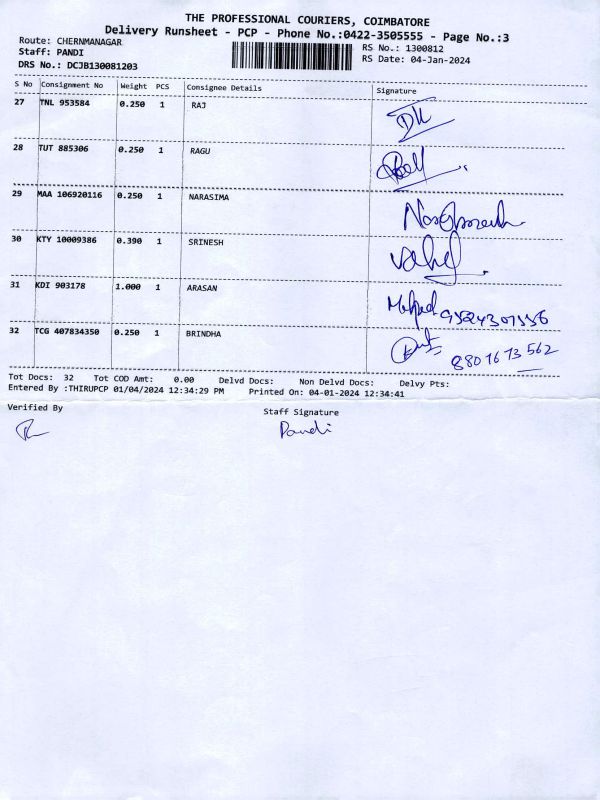 THE PROFESSIONAL COURIERS, COIMBATORE
Delivery Runsheet - PCP - Phone No.:0422-3505555 - Page No.:3
Route: CHERNMANAGAR
RS No.: 1300812
Staff: PANDI
RS Date: 04-Jan-2024
DRS No.: DCJB130081203
S No Consignment No Weight PCS Consignee Details Signature
27 TNL 953584 0.250 1 RAJ
28 TUT 885306 0.250 1 RAGU
29 MAA 106920116 0.250 1 NARASIMA
30 KTY 10009386 0.390 1 SRINESH
31 KDI 903178 1.000 1 ARASAN
32 TCG 407834350 0.250 1 BRINDHA
8801673562
Tot Docs: 32 Tot COD Amt: 0.00 Delvd Docs: Non Delvd Docs: Delvy Pts:
Entered By :THIRUPCP 01/04/2024 12:34:29 PM Printed On: 04-01-2024 12:34:41
Verified By Staff Signature
Pandi